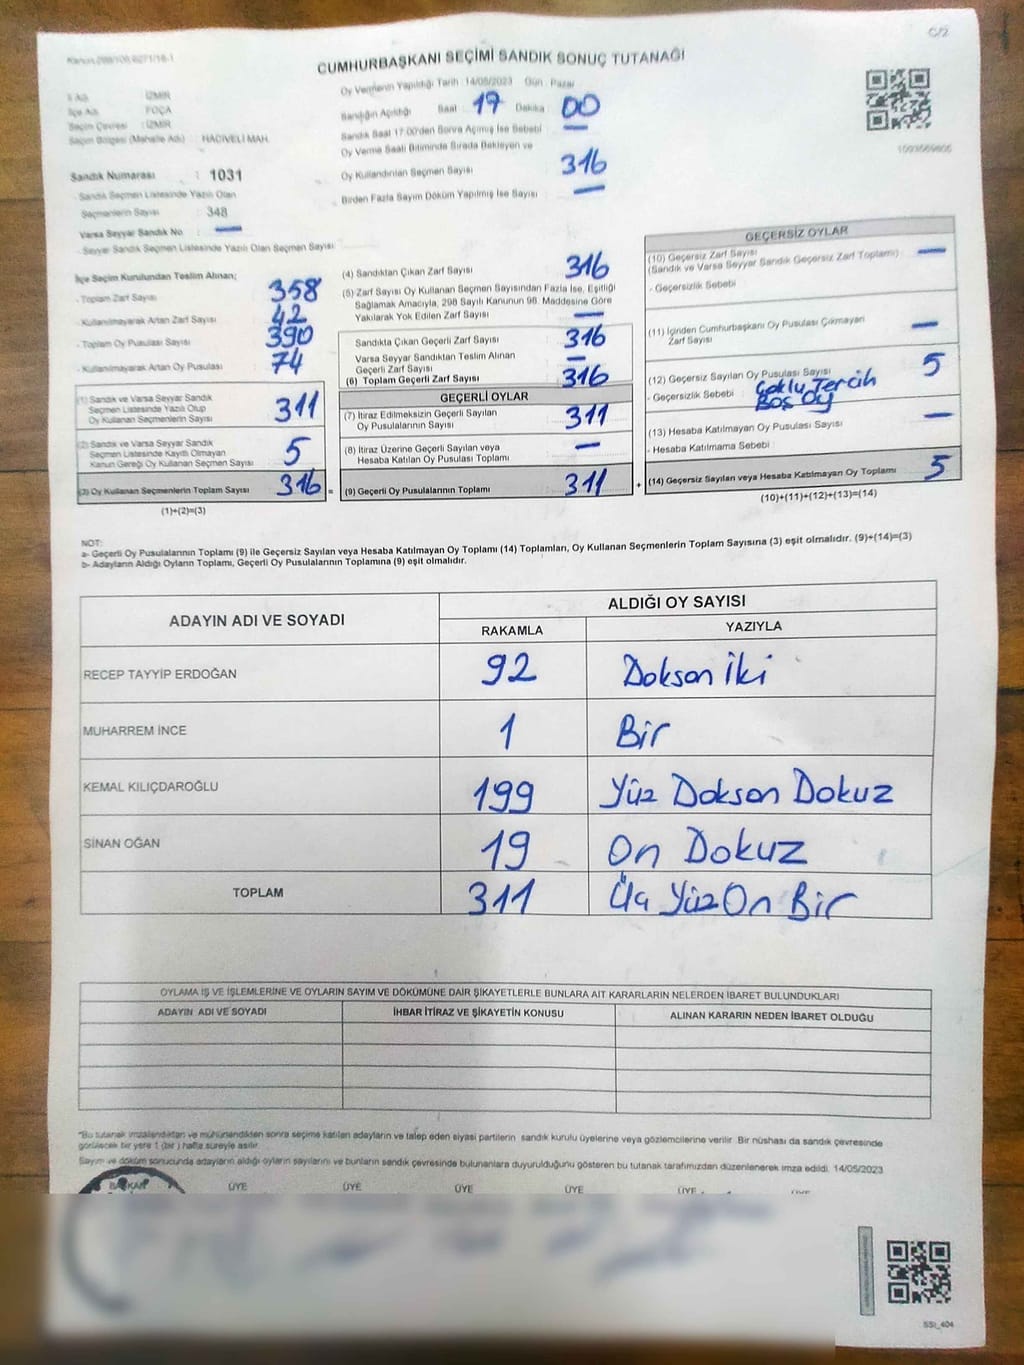 C/2
CUMHURBAŞKANI SEÇİMİ SANDIK SONUÇ TUTANAĞI
Oy Vermenin Yapıldığı Tarih :14/05/2023 Gün : Pazar
İl Adı : İZMİR
İlçe Adı : FOÇA
Seçim Çevresi : İZMİR
Seçim Bölgesi (Mahalle Adı) : HACIVELİ MAH.
Sandık Numarası : 1031
- Sandık Seçmen Listesinde Yazılı Olan
Seçmenlerin Sayısı : 348
Varsa Seyyar Sandık No : —
- Seyyar Sandık Seçmen Listesinde Yazılı Olan Seçmen Sayısı :
Sandığın Açıldığı Saat : 17 Dakika : 00
Sandık Saat 17:00'den Sonra Açımış İse Sebebi : —
Oy Verme Saati Bitiminde Sırada Bekleyen ve
Oy Kullandırılan Seçmen Sayısı : 316
Birden Fazla Sayım Döküm Yapılmış İse Sayısı : —
İlçe Seçim Kurulundan Teslim Alınan;
- Toplam Zarf Sayısı : 358
- Kullanılmayarak Artan Zarf Sayısı : 42
- Toplam Oy Pusulası Sayısı : 390
- Kullanılmayarak Artan Oy Pusulası : 74
(1) Sandık ve Varsa Seyyar Sandık
Seçmen Listesinde Yazılı Olup
Oy Kullanan Seçmenlerin Sayısı : 311
(2) Sandık ve Varsa Seyyar Sandık
Seçmen Listesinde Kayıtlı Olmayan
Kanun Gereği Oy Kullanan Seçmen Sayısı : 5
(3) Oy Kullanan Seçmenlerin Toplam Sayısı : 316 =
(1)+(2)=(3)
(4) Sandıktan Çıkan Zarf Sayısı : 316
(5) Zarf Sayısı Oy Kullanan Seçmen Sayısından Fazla İse, Eşitliği
Sağlamak Amacıyla, 298 Sayılı Kanunun 98. Maddesine Göre
Yakılarak Yok Edilen Zarf Sayısı : —
Sandıkta Çıkan Geçerli Zarf Sayısı : 316
Varsa Seyyar Sandıktan Teslim Alınan
Geçerli Zarf Sayısı : —
(6) Toplam Geçerli Zarf Sayısı : 316
GEÇERLİ OYLAR
(7) İtiraz Edilmeksizin Geçerli Sayılan
Oy Pusulalarının Sayısı : 311
(8) İtiraz Üzerine Geçerli Sayılan veya
Hesaba Katılan Oy Pusulası Toplamı : —
(9) Geçerli Oy Pusulalarının Toplamı : 311 +
GEÇERSİZ OYLAR
(10) Geçersiz Zarf Sayısı : —
(Sandık ve Varsa Seyyar Sandık Geçersiz Zarf Toplamı)
- Geçersizlik Sebebi :
(11) İçinden Cumhurbaşkanı Oy Pusulası Çıkmayan
Zarf Sayısı : —
(12) Geçersiz Sayılan Oy Pusulası Sayısı : 5
- Geçersizlik Sebebi : Çoklu Tercih
Boş Oy
(13) Hesaba Katılmayan Oy Pusulası Sayısı : —
- Hesaba Katılmama Sebebi :
(14) Geçersiz Sayılan veya Hesaba Katılmayan Oy Toplamı : 5
(10)+(11)+(12)+(13)=(14)
NOT:
a- Geçerli Oy Pusulalarının Toplamı (9) ile Geçersiz Sayılan veya Hesaba Katılmayan Oy Toplamı (14) Toplamları, Oy Kullanan Seçmenlerin Toplam Sayısına (3) eşit olmalıdır. (9)+(14)=(3)
b- Adayların Aldığı Oyların Toplamı, Geçerli Oy Pusulalarının Toplamına (9) eşit olmalıdır.
ADAYIN ADI VE SOYADI ALDIĞI OY SAYISI
RAKAMLA YAZIYLA
RECEP TAYYİP ERDOĞAN 92 Doksan İki
MUHARREM İNCE 1 Bir
KEMAL KILIÇDAROĞLU 199 Yüz Doksan Dokuz
SİNAN OĞAN 19 On Dokuz
TOPLAM 311 Üç Yüz On Bir
OYLAMA İŞ VE İŞLEMLERİNE VE OYLARIN SAYIM VE DÖKÜMÜNE DAİR ŞİKAYETLERLE BUNLARA AİT KARARLARIN NELERDEN İBARET BULUNDUKLARI
ADAYIN ADI VE SOYADI İHBAR İTİRAZ VE ŞİKAYETİN KONUSU ALINAN KARARIN NEDEN İBARET OLDUĞU
*Bu tutanak imzalandıktan ve mühürlendikten sonra seçime katılan adayların ve talep eden siyasi partilerin sandık kurulu üyelerine veya gözlemcilerine verilir. Bir nüshası da sandık çevresinde
görülecek bir yere 1 (bir ) hafta süreyle asılır.
Sayım ve döküm sonucunda adayların aldığı oyların sayılarını ve bunların sandık çevresinde bulunanlara duyurulduğunu gösteren bu tutanak tarafımızdan düzenlenerek imza edildi. 14/05/2023
BAŞKAN ÜYE ÜYE ÜYE ÜYE ÜYE ÜYE
SSI_404